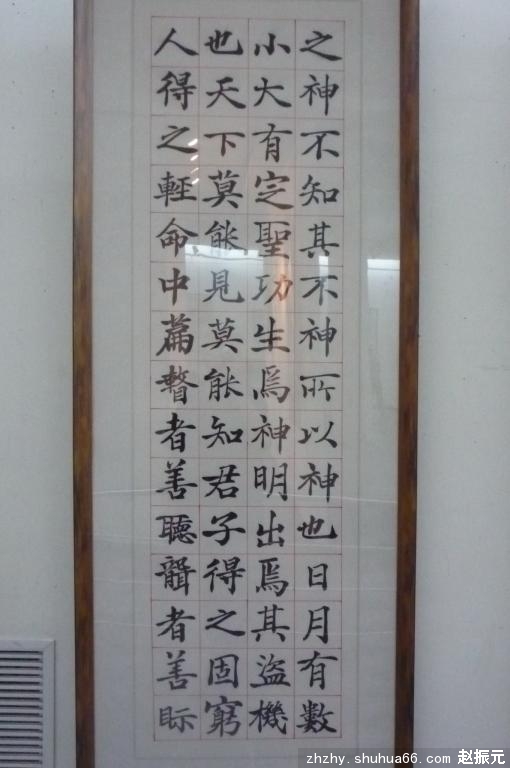 之神不知其不神所以神也日月有數
小大有定聖功生焉神明出焉其盜機
也天下莫能見莫能知君子得之固窮
人得之輕命中篇瞽者善聽聾者善眎
zhzhy.shuhua66.com 赵振元